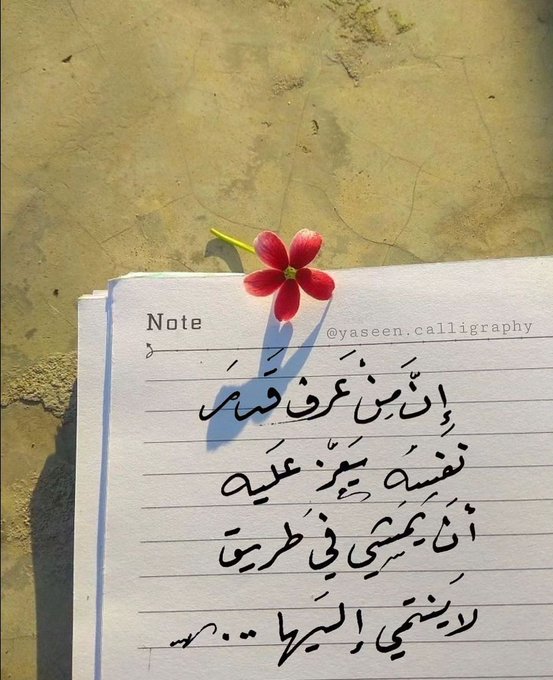 Note
@yaseen.calligraphy
إنَّ مِنْ عَرف قَدرَ
نَفسِهُ يَعِزّ عَليه
أنَ يَمَشي في طَريق
لا يَنتمي إليَها ...